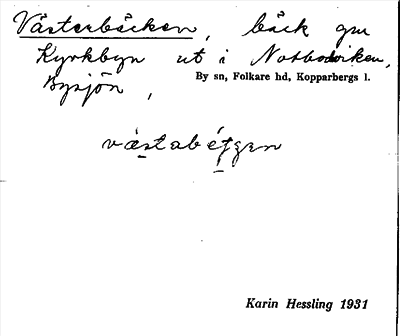 Västerbäcken, bäck gm
Kyrkbyn ut i Notbodviken,
By sn, Folkare hd, Kopparbergs l.
Bysjön,
västabétʃen
Karin Hessling 1931